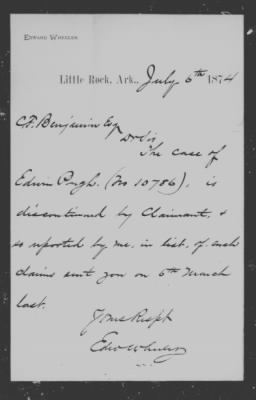 EDWARD WHEELER
Little Rock, Ark., July 6th 1874
C.F. Benjamin Esq
Dr Sir
The case of
Edwin Pugh. (No 10786), is
discontinued by Claimant, &
so reported by me, in list, of such
claims sent you on 6th March
last.
Yours Respt
Edw Wheeler